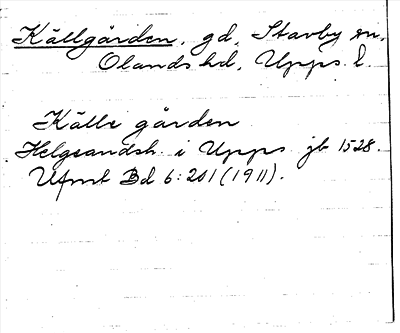 Källgården, gd, Stavby sn,
Olands hd, Upps. l.
Källe gården
Helgeandsh. i Upps jb 1528.
UFmt Bd 6:201 (1911).